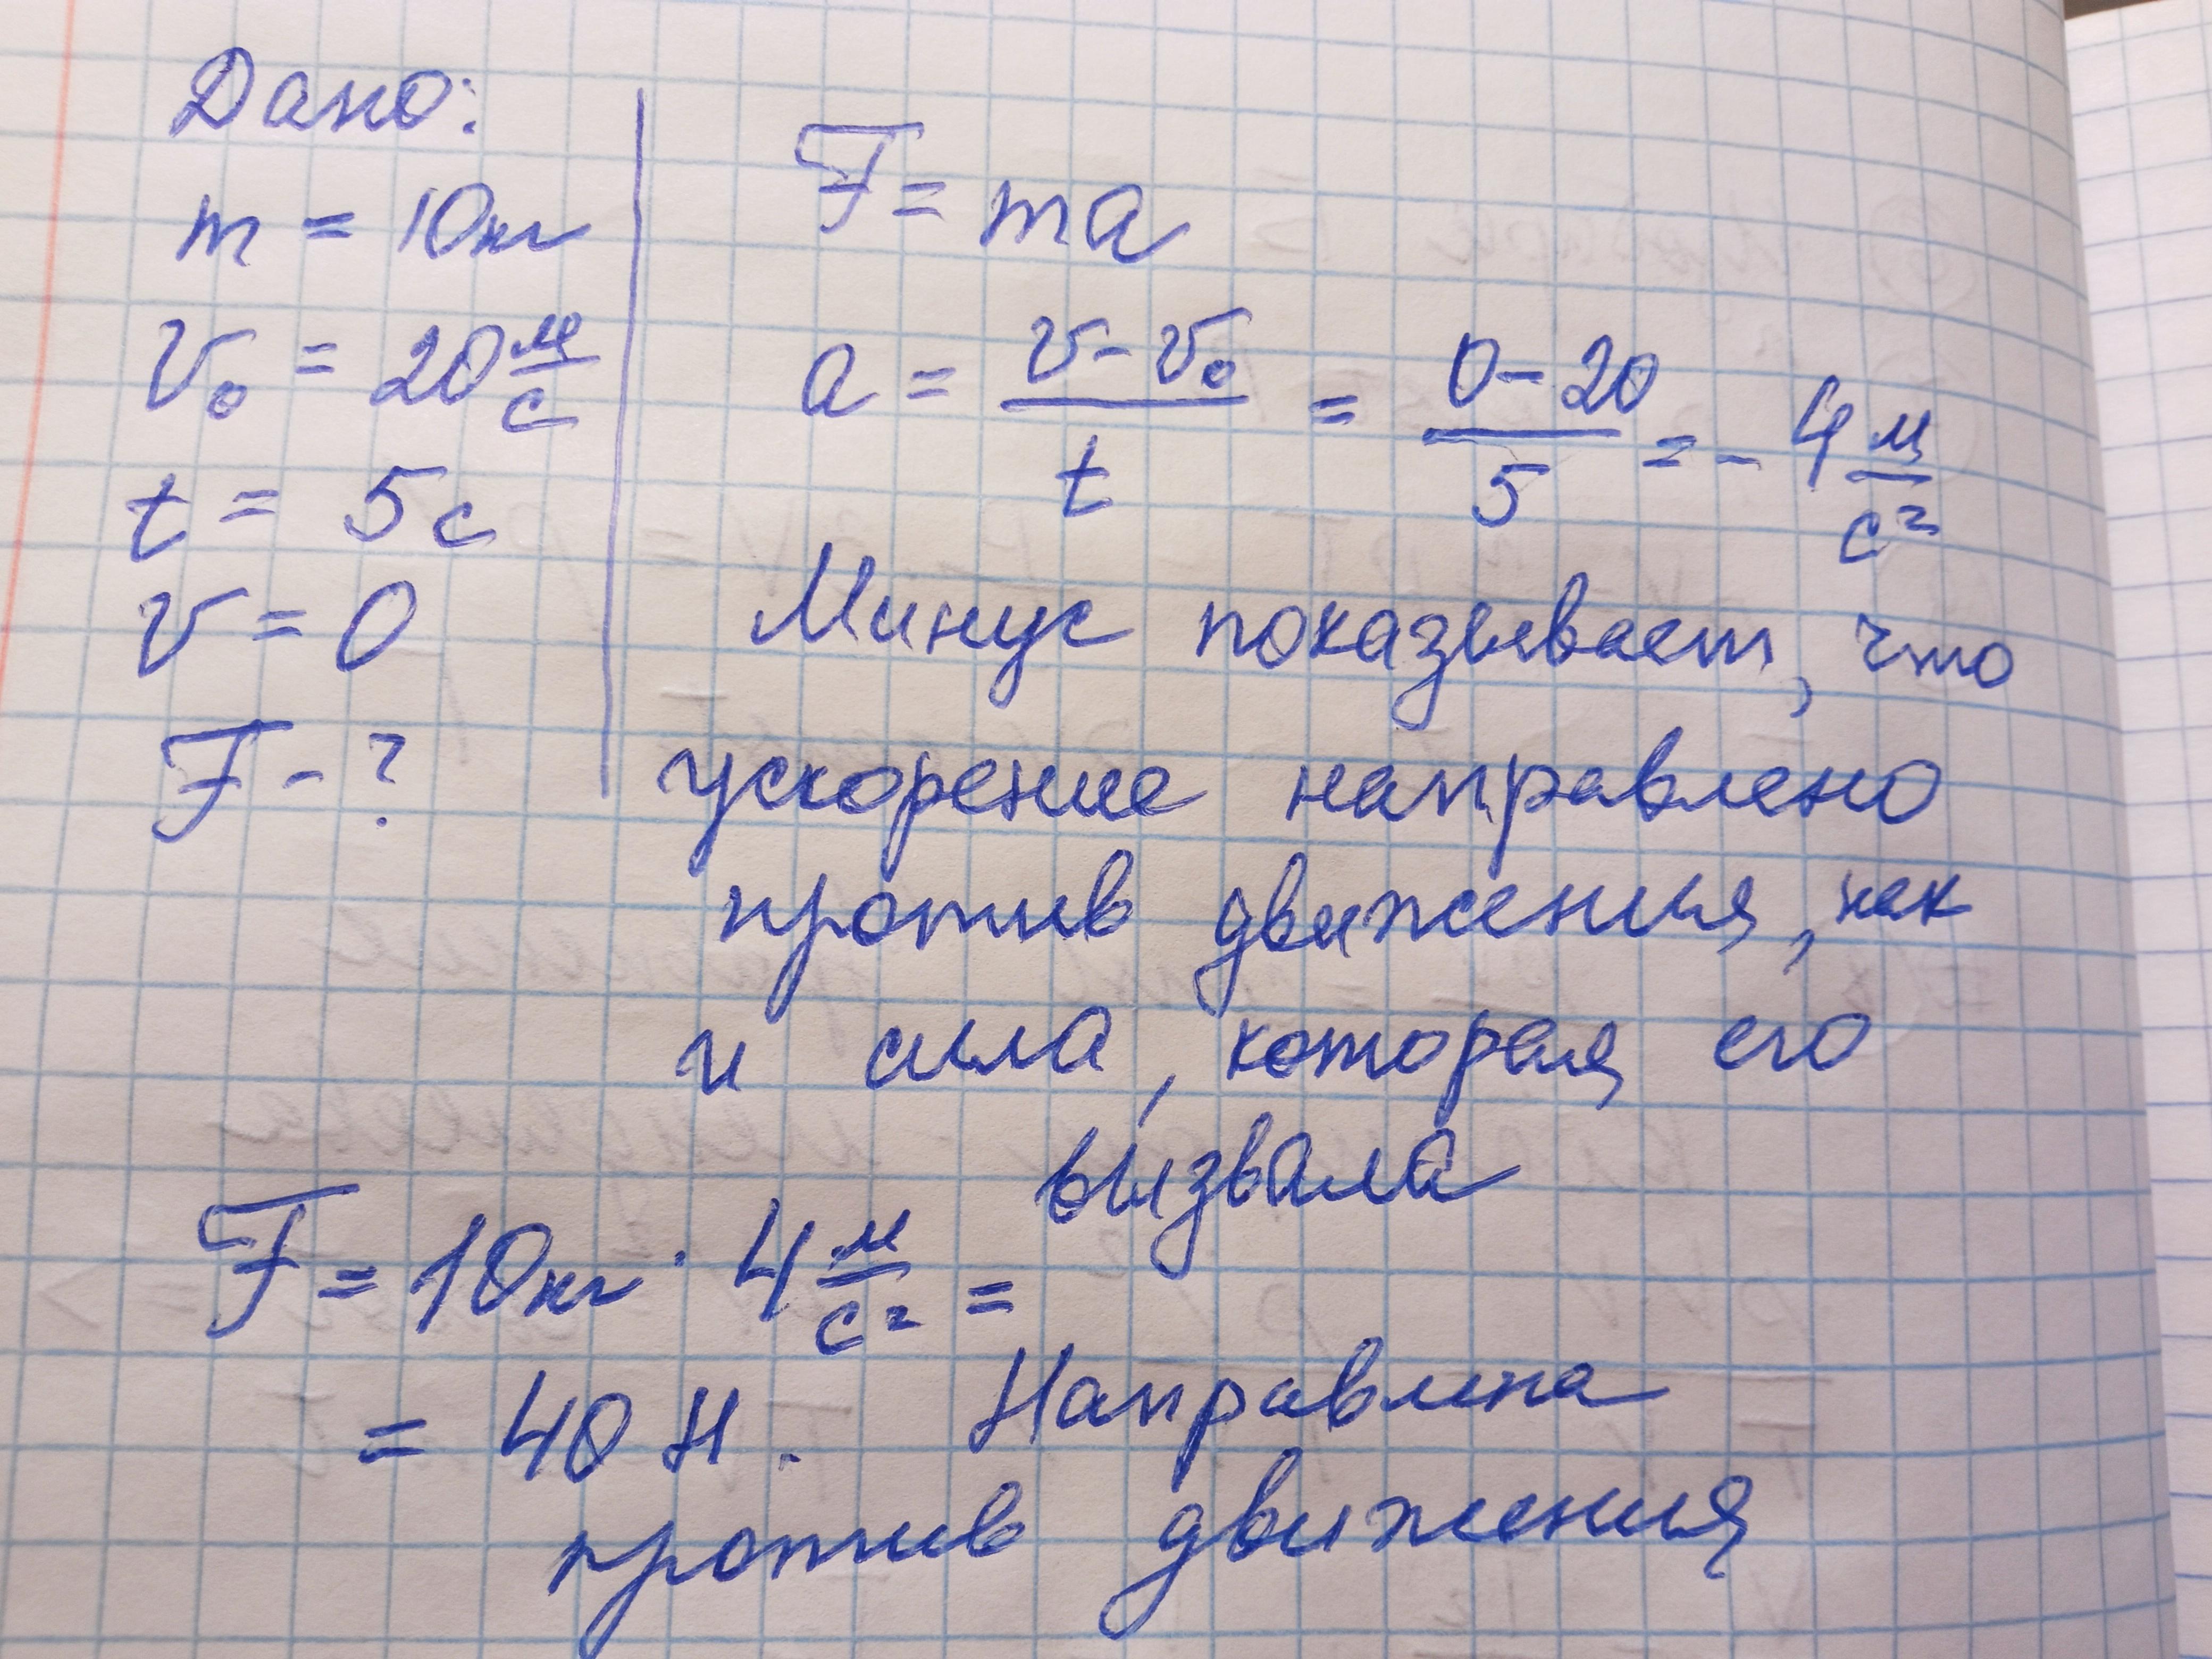 Дано:
m = 10кг
v₀ = 20 м/с
t = 5с
v = 0
F - ?
F = ma
a = (v - v₀)/t = (0 - 20)/5 = - 4 м/с²
Минус показывает, что
ускорение направлено
против движения, как
и сила, которая его
вызвала
F = 10кг · 4 м/с² =
= 40 Н. Направлена
против движения